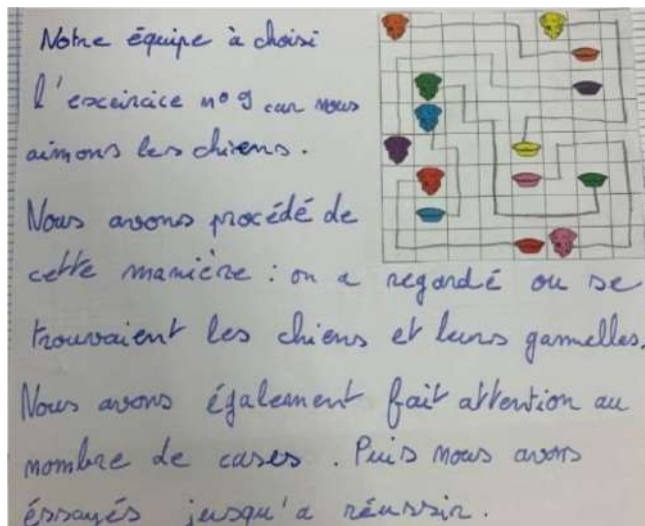 Notre équipe à choisi
l'exceircice n°9 car nous
aimons les chiens.
Nous avons procédé de
cette manière : on a regardé ou se
trouvaient les chiens et leurs gamelles.
Nous avons également fait attention au
nombre de cases. Puis nous avons
éssayés jusqu'a réussir.